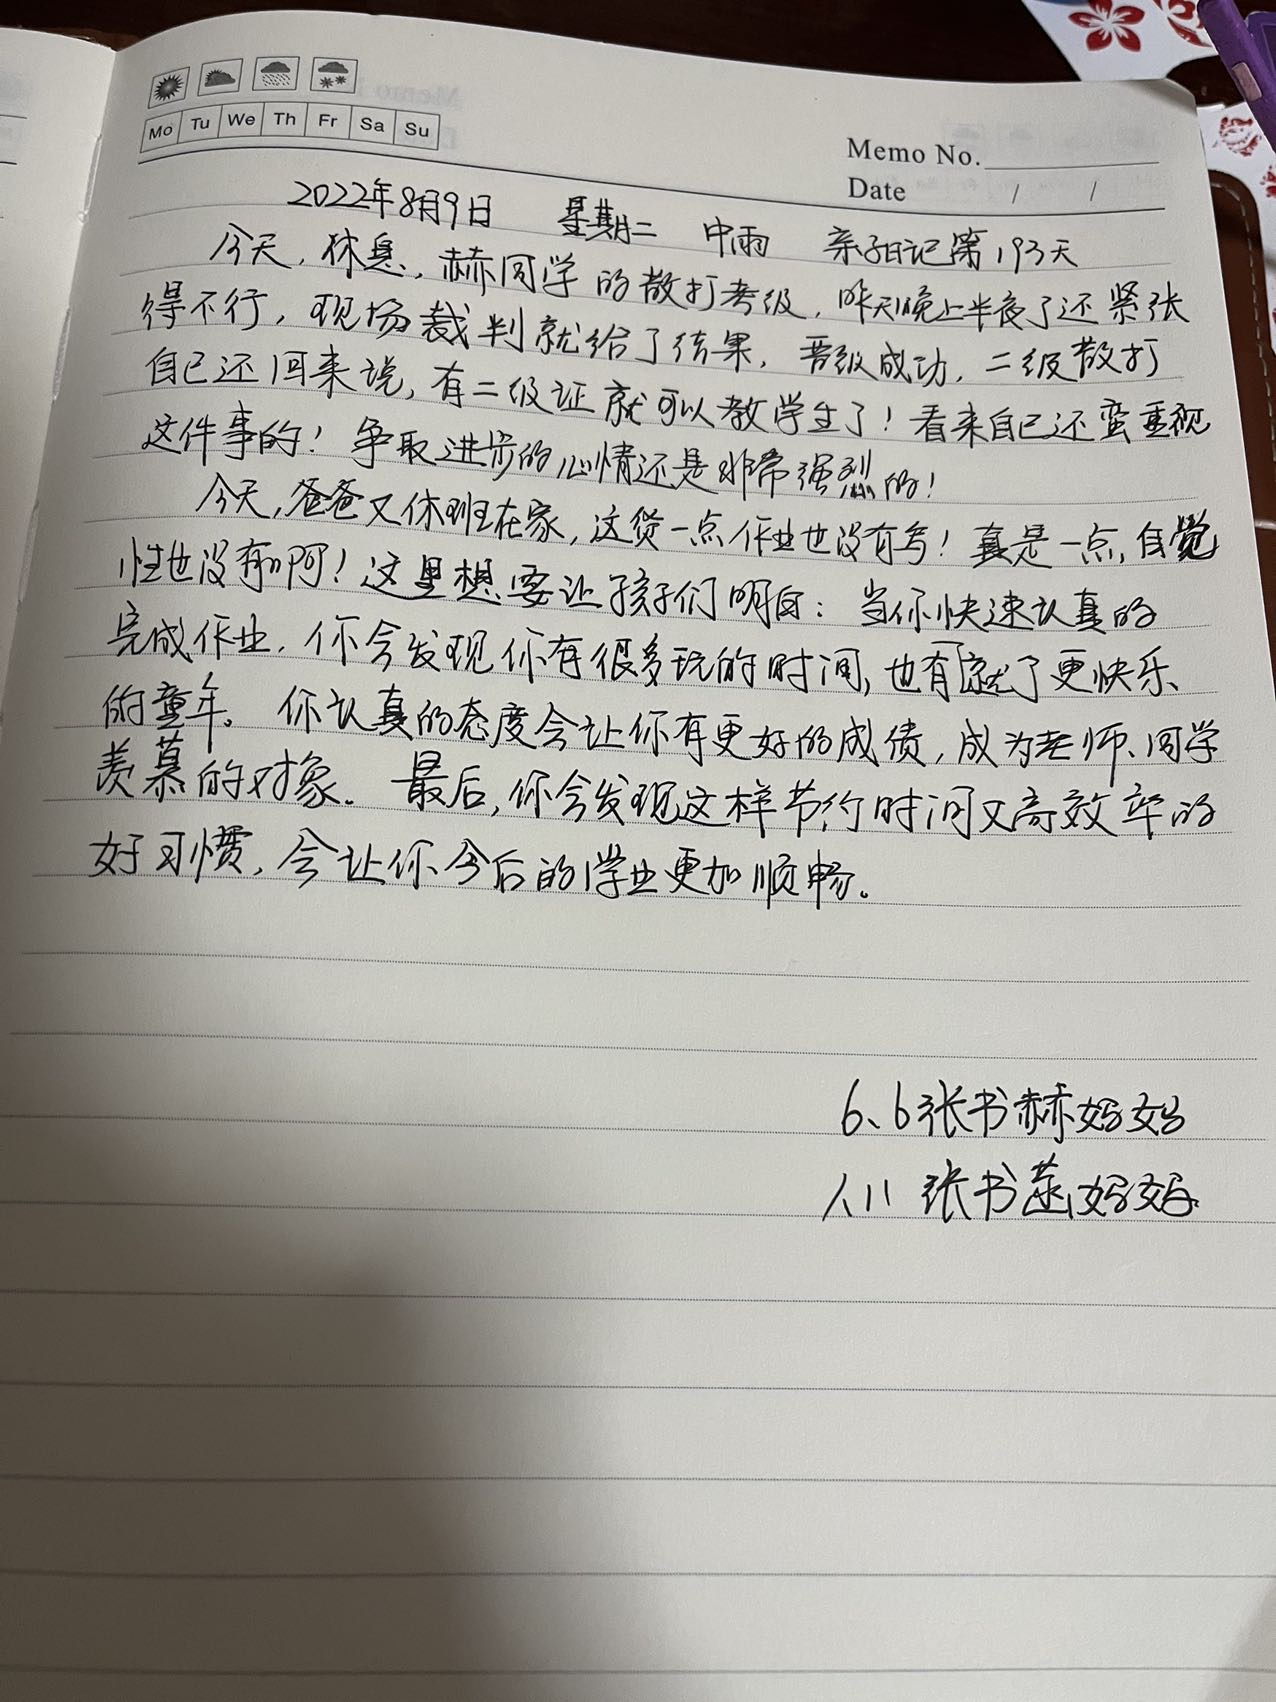 Mo Tu We Th Fr Sa Su
Memo No.
Date / /
2022年8月9日 星期二 中雨 亲子日记第193天
今天,休息,赫同学的散打考级,昨天晚上半夜了还紧张
得不行,现场裁判就给了结果,晋级成功,二级散打
自己还回来说,有二级证就可以教学生了!看来自己还蛮重视
这件事的!争取进步的心情还是非常强烈的!
今天,爸爸又休班在家,这货一点作业也没有写!真是一点,自觉
性也没有啊!这里想要让孩子们明白:当你快速认真的
完成作业,你会发现你有很多玩的时间,也有就了更快乐
的童年。你认真的态度会让你有更好的成绩,成为老师、同学
羡慕的对象。最后,你会发现这样节约时间又高效率的
好习惯,会让你今后的学业更加顺畅。
6、6张书赫妈妈
张书菡妈妈